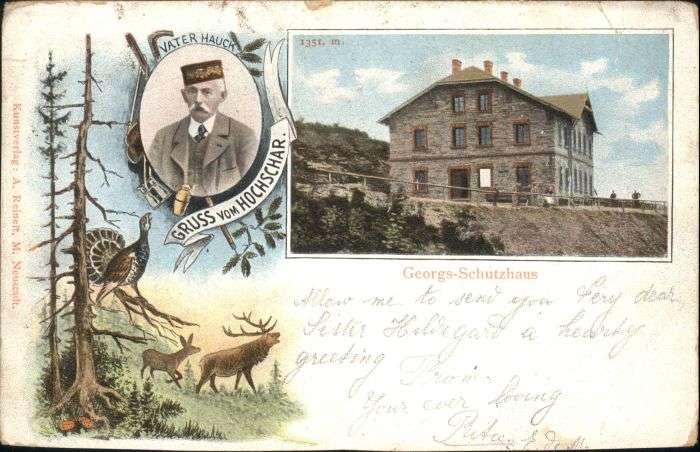 VATER HAUCK
GRUSS VOM HOCHSCHAR.
1351. m.
Georgs-Schutzhaus
Kunstverlag: A. Reinelt, M. Neustadt.
Allow me to send you Very dear
Sister Hildegard a hearty
greeting
From
Your ever loving
Rita